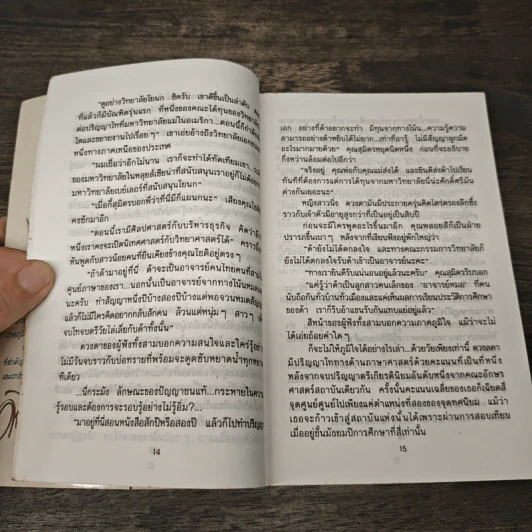 "ดูอย่างวิทยาลัยโยนก ซิครับ เขาตี้ขึ้นเป็นลำดับ
ที่แล้วก็มีบัณฑิตรุ่นแรก ที่หนึ่งของคณะได้ทุนของวิทยาลัย
ต่อปริญญาโทที่มหาวิทยาลัยแม่ในอเมริกา...ตอนนี้ก็กำลัง
โตและขยายงานไปเรื่อยๆ" เขาเอ่ยอ้างถึงวิทยาลัยเอกชน
หนึ่งทางภาคเหนือของประเทศ
"ผมเชื่อว่าอีกไม่นาน เราก็จะทำได้ทัดเทียมเขา
ของมหาวิทยาลัยในหลุยส์เซียน่าที่สนับสนุนเราอยู่
มหาวิทยาลัยเบย์เลอร์ที่สนับสนุนโยนก"
"เมื่อกี้สุมิตรบอกพี่ว่าที่นี่มีกี่แผนกนะ" เสียงคุณ
คะซักมาอีก
"ตอนนี้เรามีศิลปศาสตร์กับบริหารธุรกิจ คิดว่า
หนึ่งเราคงจะเปิดนิเทศศาสตร์กับวิทยาศาสตร์ได้"
หันพูดกับสาวน้อยคนที่ยืนเคียงข้างคุณใยดีอยู่ตรงๆ
"ถ้าด้ามาอยู่ที่นี่ ด้าจะเป็นอาจารย์คนไทยคนที่
ศูนย์ภูเก็ตของเรา...นอกนั้นเป็นอาจารย์จากทางโน้นหมด
นะครับ ทำสัญญาหนึ่งปีบ้างสองปีบ้างแต่พอจวนหมดสัญญา
แล้วก็ไม่มีใครคิดอยากกลับสักคน ล้วนแต่หนุ่มๆ สาวๆ
จบโทจบตรีวัยไล่เลี่ยกับด้าทั้งนั้น"
ดวงตาของผู้ฟังทั้งสามบอกความสนใจและใคร่รู้
ไม่มีวันจบราวกับบ่อทรายที่พร้อมจะดูดซับหยาดน้ำทุกหยาด
ทีเดียว
...นี่กระมัง ลักษณะของปัญญาชนแท้...กระหายในความ
รู้รอบและต้องการจะรอบรู้อย่างไม่รู้อิ่ม?...
"มาอยู่ที่นี่สอนหนังสือสักปีหรือสองปี แล้วก็ไปทำปริญญา
14
เอก อย่างที่ด้าอยากจะทำ มีทุนจากทางโน้น...ความรู้ความ
สามารถอย่างด้าหยิบได้ไม่ยาก...เท่าที่อารู้ ไม่มีสัญญาผูกมัด
อะไรมากมายด้วย" คุณสุมิตรหยุดนิดหนึ่ง ก่อนที่จะอธิบาย
กึ่งหว่านล้อมต่อไปอีกว่า
"จริงอยู่ คุณพ่อกับคุณแม่ส่งได้ และยินดีส่งด้าไปเรียน
ทันทีที่ต้องการแต่การได้ทุนจากมหาวิทยาลัยนี่น่ะศักดิ์ศรีมัน
ต่างกันเยอะนะ"
หญิงสาวนิ่ง ดวงตามีประกายครุ่นคิดไตร่ตรองลึกซึ้ง
ราวกับเจ้าตัวมีอายุสูงกว่าที่เป็นอยู่เป็นสิบปี
ก่อนจะมีใครพูดอะไรขึ้นมาอีก คุณพลอยสีก็เป็นฝ่าย
ปรารภขึ้นเบาๆ หลังจากที่เธอยืนฟังอยู่พักใหญ่ว่า
"ด้ายังไม่ได้ตกลงใจ และทางคณะกรรมการวิทยาลัยก็
ยังไม่ได้ตกลงใจรับด้าเข้าเป็นอาจารย์นะคะ"
"ทางเรายินดีรับแน่นอนอยู่แล้วนะครับ" คุณสุมิตรรีบบอก
"แค่รู้ว่าด้าเป็นลูกสาวคนเล็กของ 'อาจารย์หมอ' ที่คน
นับถือกันทั่วบ้านทั่วเมืองและแค่เห็นผลการเรียนประวัติการศึกษา
ของด้า เราก็รีบอ้าแขนรับกันแทบแย่อยู่แล้ว"
สีหน้าของผู้ฟังทั้งสามบอกความภาคภูมิใจ แม้ว่าจะไม่
ได้เอ่ยถ้อยคำใดๆ
ก็จะไม่ให้ภูมิใจได้อย่างไรเล่า...ด้วยวัยเพียงเท่านี้ ดวงลดา
มีปริญญาโททางด้านภาษาศาสตร์ด้วยคะแนนที่เป็นที่หนึ่ง
หลังจากจบปริญญาตรีเกียรตินิยมอันดับหนึ่งจากคณะอักษร
ศาสตร์สถาบันเดียวกัน ครั้งนั้นคะแนนเฉลี่ยของเธอก็เฉียดสี่
จุดศูนย์ศูนย์ไปเพียงแค่ตำแหน่งที่สองของจุดทศนิยม แม้ว่า
เธอจะก้าวเข้าสู่สถาบันแห่งนั้นได้เพราะผ่านการสอบเทียบ
เมื่ออยู่ชั้นมัธยมปีการศึกษาที่สี่เท่านั้น
15